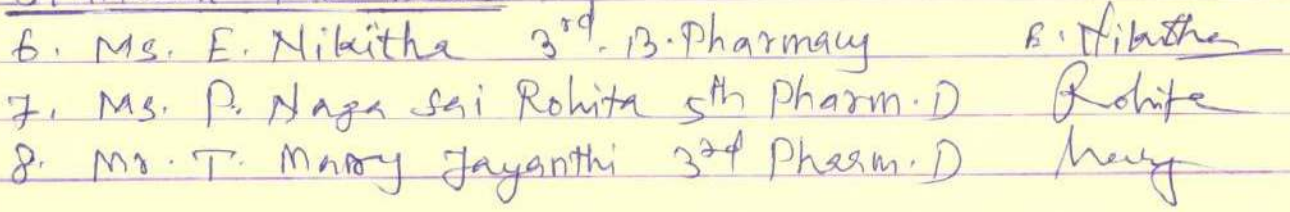 6. Ms. E. Nikitha 3rd. B. Pharmacy E. Nikitha
7. Ms. P. Naga Sai Rohita 5th Pharm. D Rohita
8. Mr. T. Mary Jayanthi 3rd Pharm. D Mary